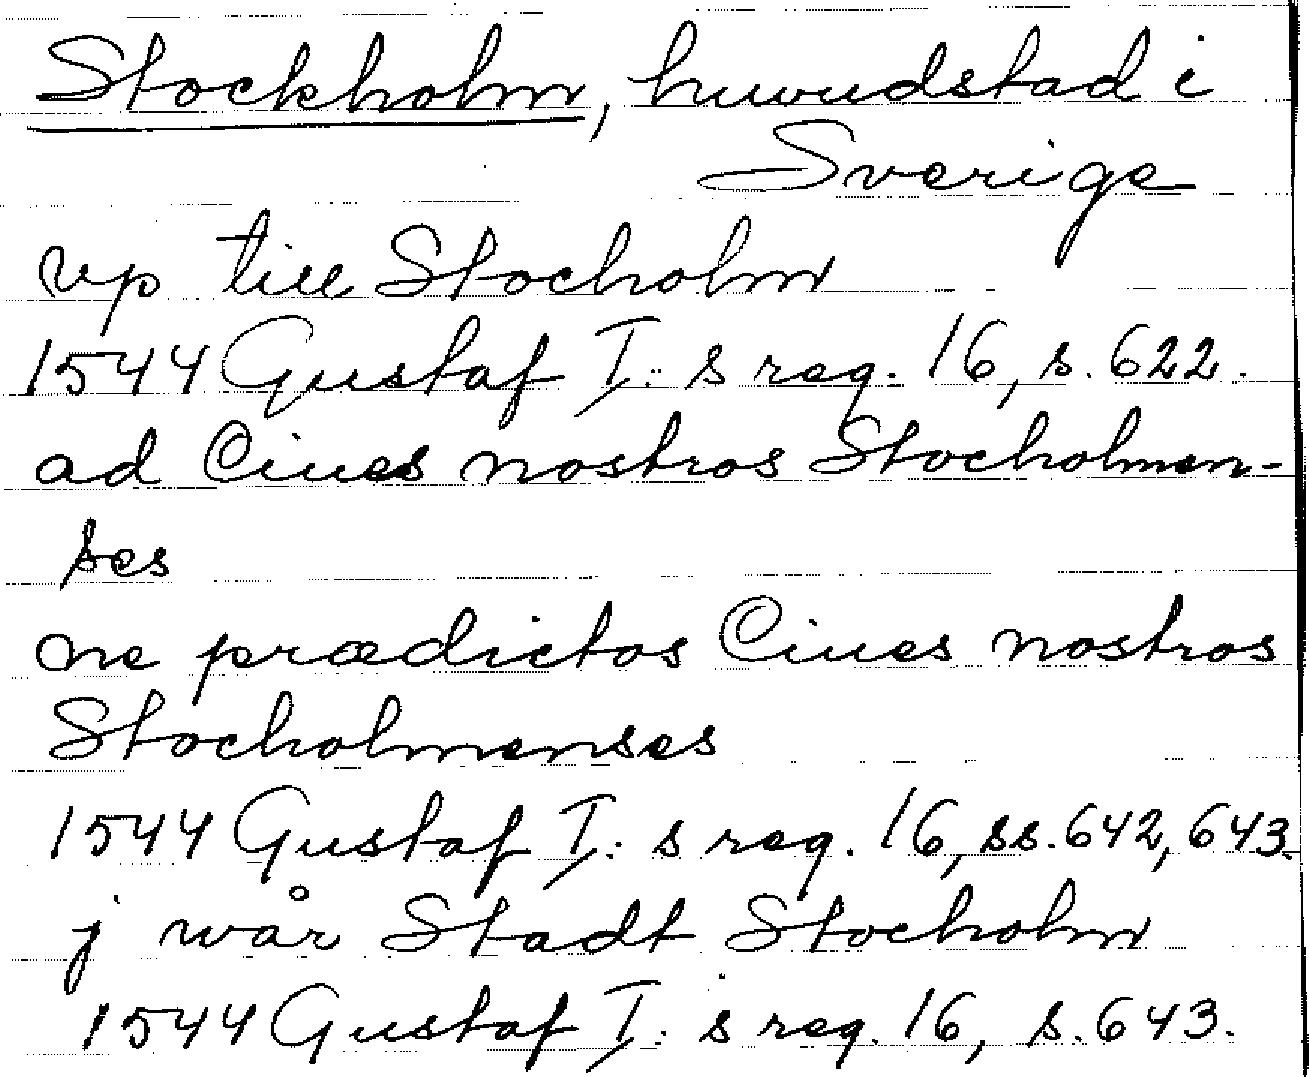 Stockholm, huvudstad i
Sverige
vp till Stocholm
1544 Gustaf I: s reg. 16, s. 622.
ad Ciues nostros Stocholmen-
ses
ne prædictos Ciues nostros
Stocholmenses
1544 Gustaf I: s reg. 16, ss. 642, 643.
j wår Stadt Stocholm
1544 Gustaf I: s reg. 16, s. 643.